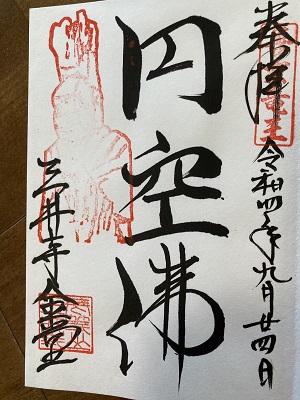 奉拝
令和四年九月廿四日
円空佛
三井寺金堂